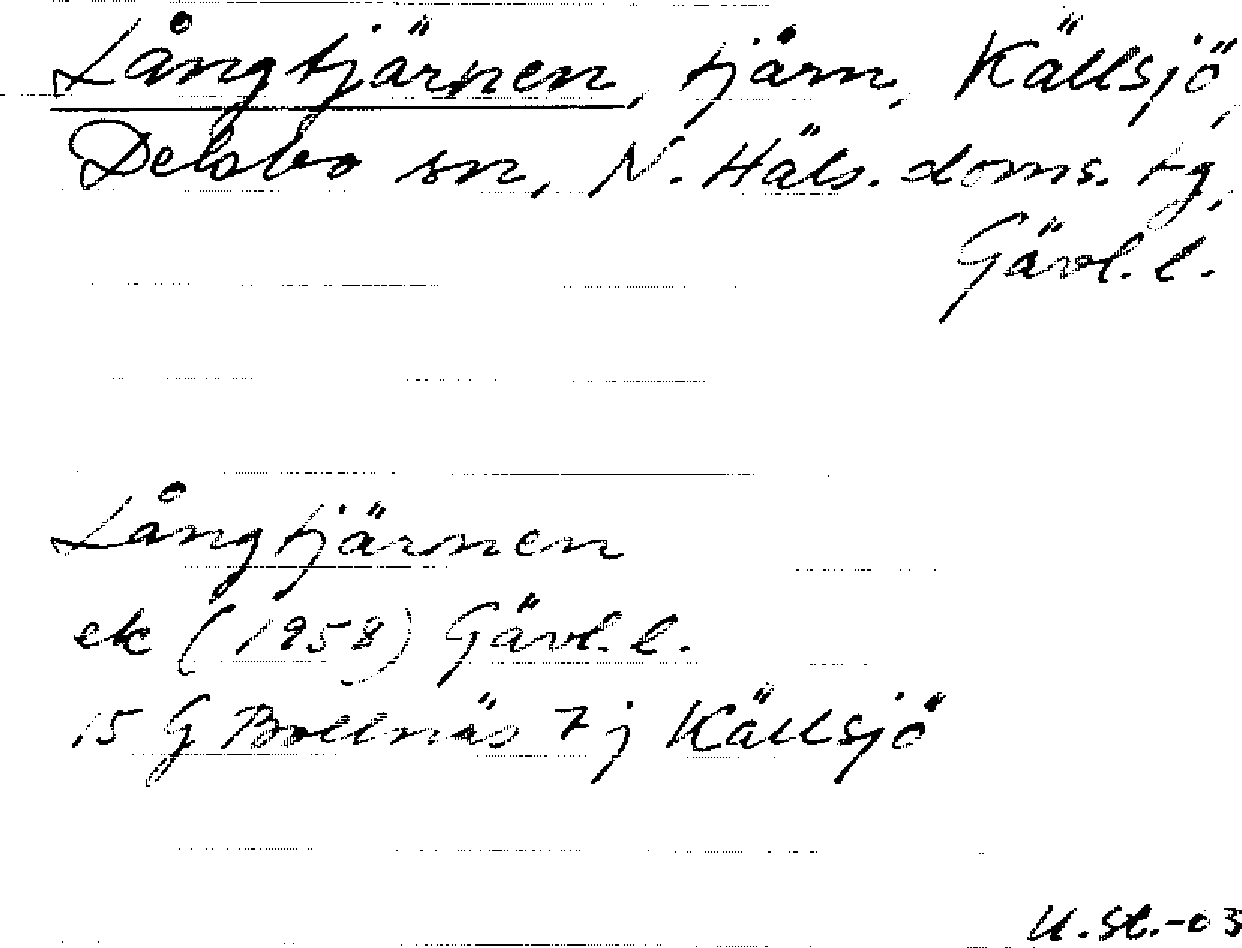 Långtjärnen, tjärn, Källsjö,
Delsbo sn, N. Häls. doms. tg,
Gävl. l.
Långtjärnen
ek (1958) Gävl. l.
15 G Bollnäs 7 j Källsjö
U. St.-03